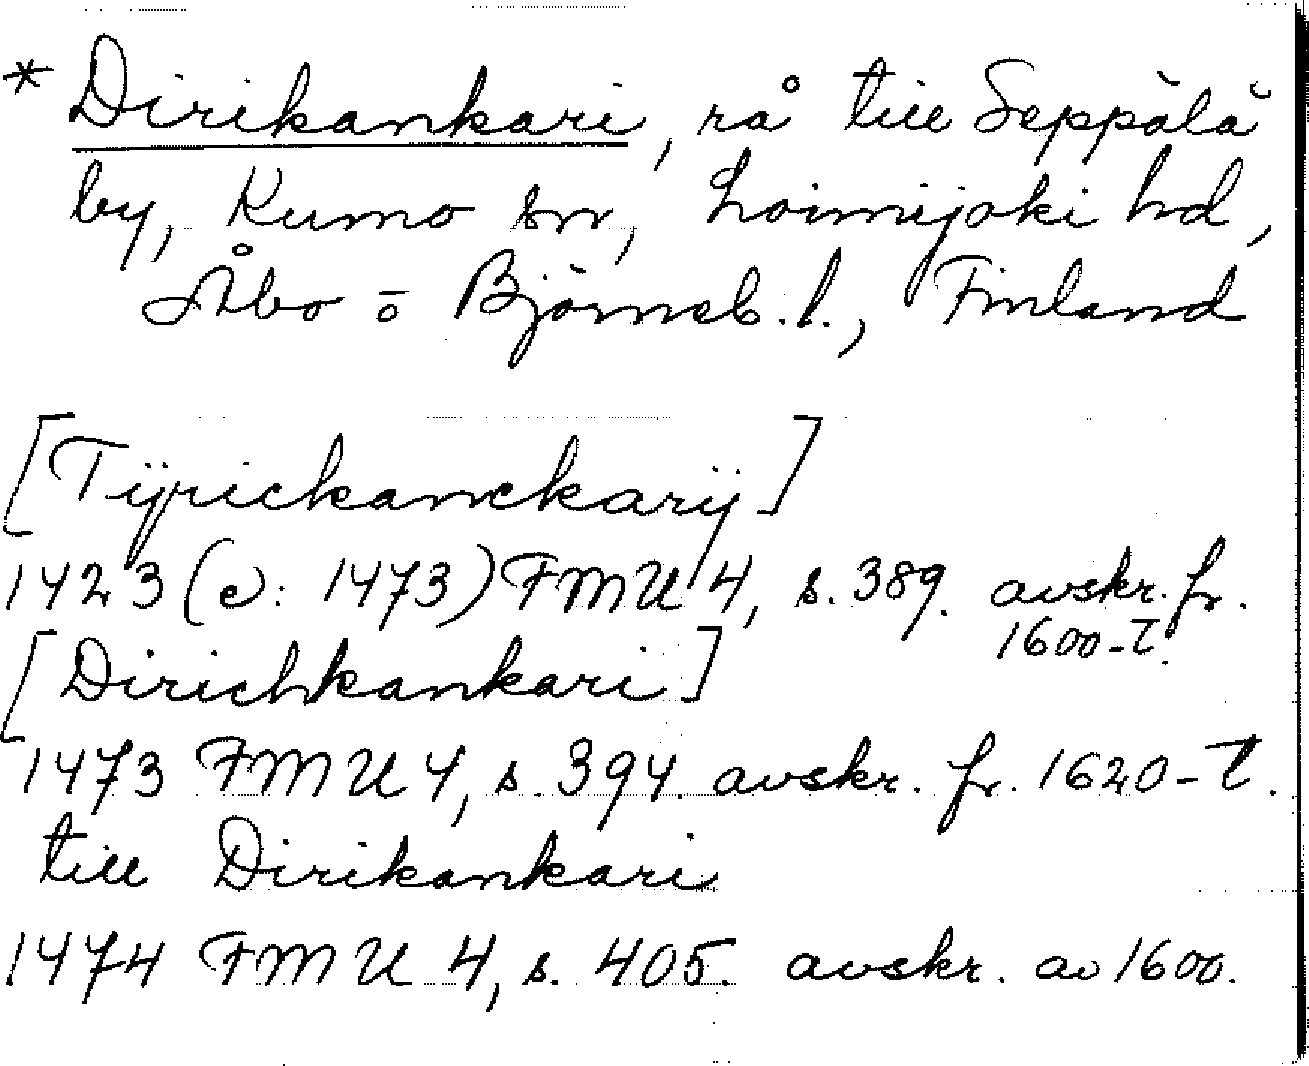 * Dirikankari, rå till Seppälä
by, Kumo sn, Loimijoki hd,
Åbo o Björneb. l., Finland
[Tÿrickanckarij]
1423 (e: 1473) FMU 4, s. 389. avskr. fr.
1600-t.
[Dirichkankari]
1473 FMU 4, s. 394. avskr. fr. 1620-t.
till Dirikankari
1474 FMU 4, s. 405. avskr. av 1600.